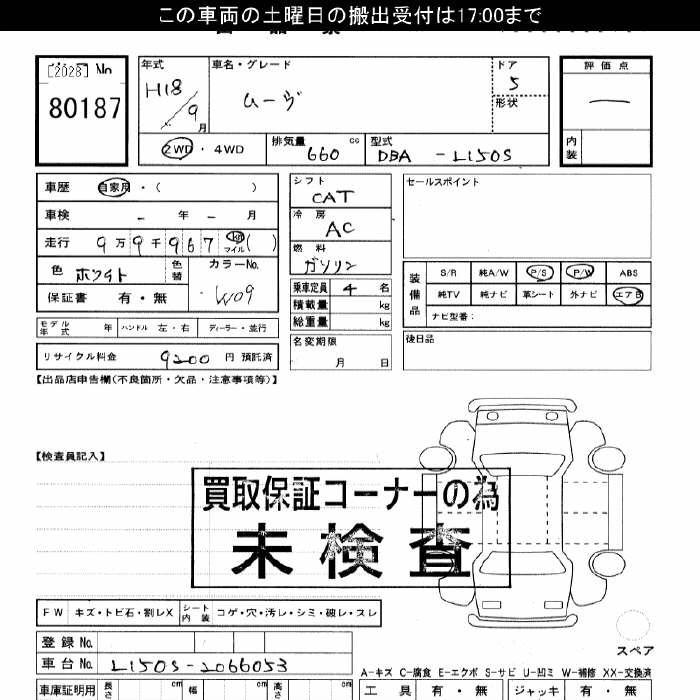 この車両の土曜日の搬出受付は17:00まで
[2028] No
80187
年式 車名・グレード ドア 評価点
H18/9月 ムーヴ 5 —
形状
内装
2WD ・ 4WD 排気量 660 cc 型式 DBA - L150S
車歴 自家用 ・ ( )
車検 - 年 - 月
走行 9万9千967 km マイル ( )
色 ホワイト 色替 カラーNo. W09
保証書 有・無
シフト CAT
冷房 AC
燃料 ガソリン
乗車定員 4 名
積載量 kg
総重量 kg
名変期限 月 日
セールスポイント
装備品 S/R 純A/W P/S P/W ABS
純TV 純ナビ 革シート 外ナビ エアB
ナビ型番:
後日品
モデル年式 年 ハンドル 左・右 ディーラー・並行
リサイクル料金 9200 円 預託済
【出品店申告欄(不良箇所・欠品・注意事項等)】
【検査員記入】
買取保証コーナーの為
未検査
FW キズ・トビ石・割レX シート内装 コゲ・穴・汚レ・シミ・破レ・スレ
スペア
登録 No.
車台 No. L150S-2066053
A-キズ C-腐食 E-エクボ S-サビ U-凹ミ W-補修 XX-交換済
車庫証明用 長さ cm 幅 cm 高さ cm 工具 有・無 ジャッキ 有・無